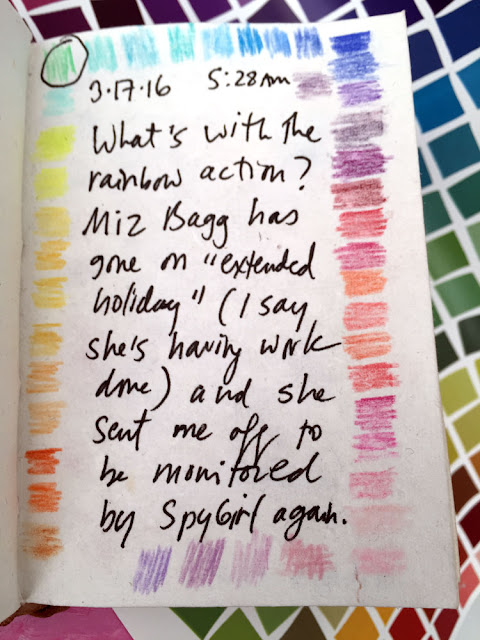 3.17.16 5:28AM
What's with the
rainbow action?
Miz Bagg has
gone on "extended
holiday" (I say
she's having work
done) and she
sent me off to
be monitored
by SpyGirl again.